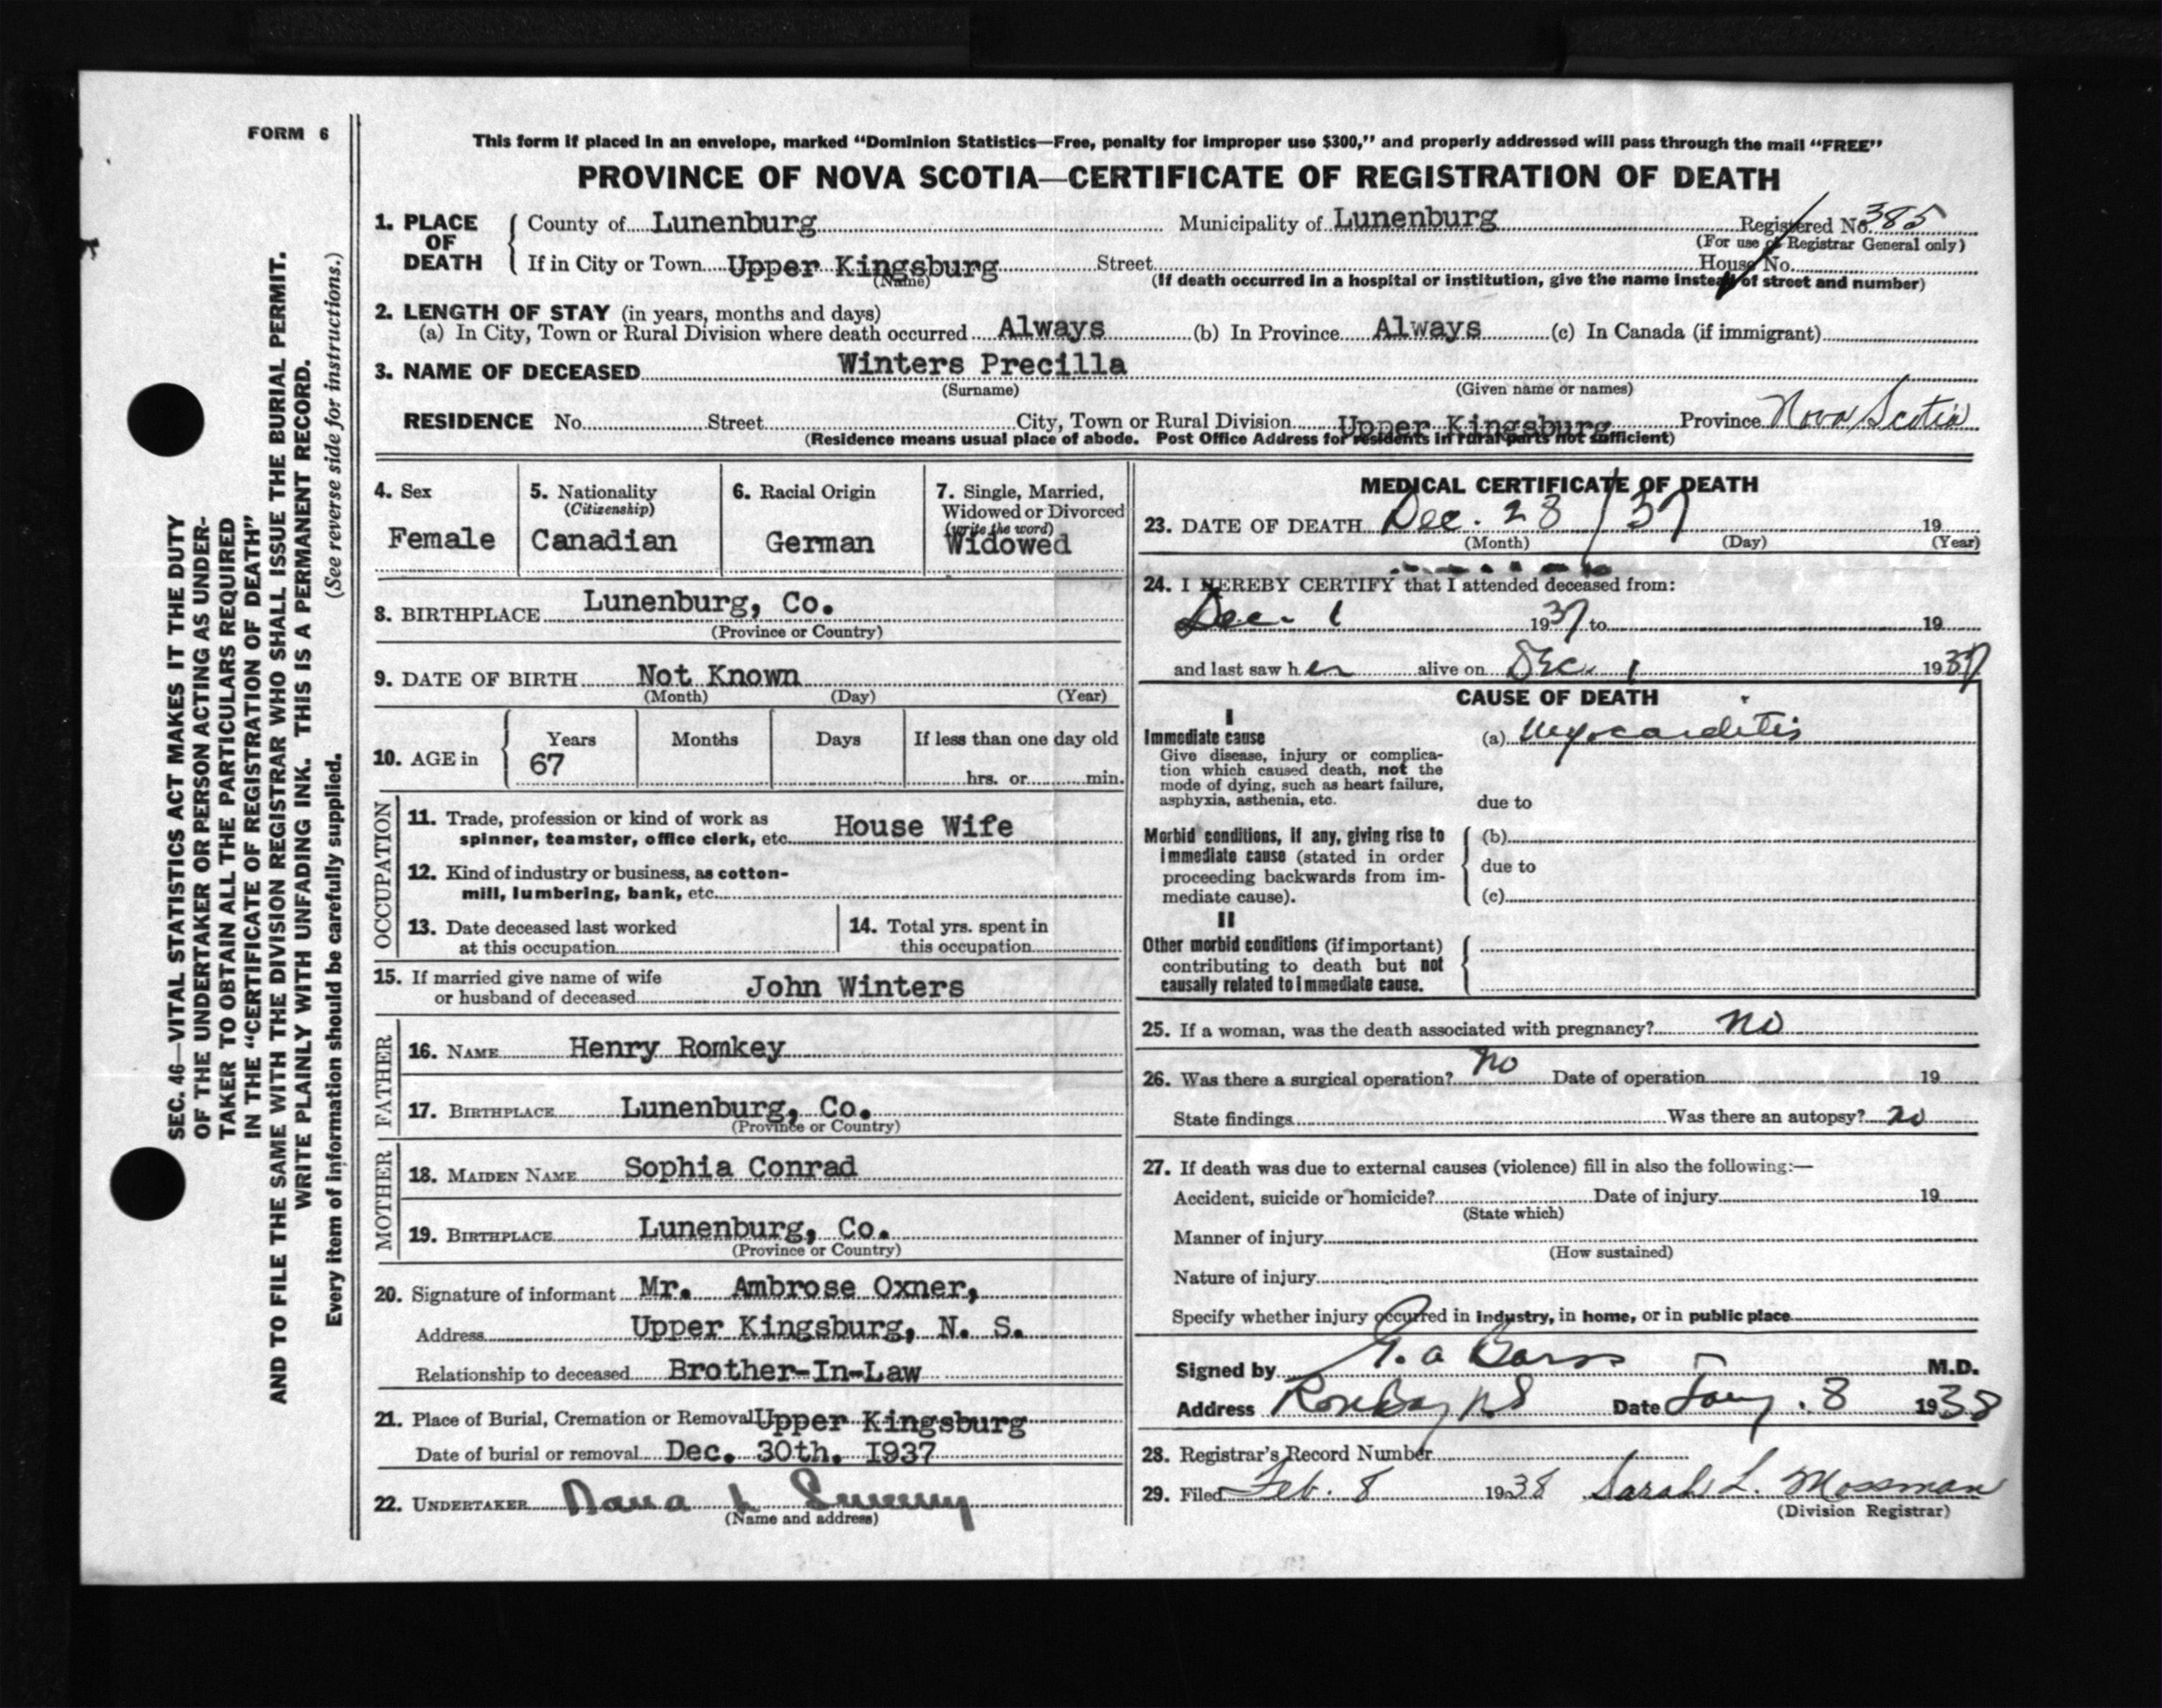 FORM 6
This form if placed in an envelope, marked "Dominion Statistics—Free, penalty for improper use $300," and properly addressed will pass through the mail "FREE"
PROVINCE OF NOVA SCOTIA—CERTIFICATE OF REGISTRATION OF DEATH
1. PLACE OF DEATH County of Lunenburg Municipality of Lunenburg Registered No. 385
(For use of Registrar General only)
If in City or Town Upper Kingsburg Street House No.
(Name) (If death occurred in a hospital or institution, give the name instead of street and number)
2. LENGTH OF STAY (in years, months and days)
(a) In City, Town or Rural Division where death occurred Always (b) In Province Always (c) In Canada (if immigrant)
3. NAME OF DECEASED Winters Precilla
(Surname) (Given name or names)
RESIDENCE No. Street City, Town or Rural Division Upper Kingsburg Province Nova Scotia
(Residence means usual place of abode. Post Office Address for residents in rural parts not sufficient)
4. Sex
Female
5. Nationality
(Citizenship)
Canadian
6. Racial Origin
German
7. Single, Married,
Widowed or Divorced
(write the word)
Widowed
8. BIRTHPLACE Lunenburg, Co.
(Province or Country)
9. DATE OF BIRTH Not Known
(Month) (Day) (Year)
10. AGE in Years Months Days If less than one day old
67 hrs. or min.
OCCUPATION
11. Trade, profession or kind of work as
spinner, teamster, office clerk, etc. House Wife
12. Kind of industry or business, as cotton-
mill, lumbering, bank, etc.
13. Date deceased last worked
at this occupation
14. Total yrs. spent in
this occupation
15. If married give name of wife
or husband of deceased John Winters
FATHER
16. NAME Henry Romkey
17. BIRTHPLACE Lunenburg, Co.
(Province or Country)
MOTHER
18. MAIDEN NAME Sophia Conrad
19. BIRTHPLACE Lunenburg, Co.
(Province or Country)
20. Signature of informant Mr. Ambrose Oxner,
Address Upper Kingsburg, N. S.
Relationship to deceased Brother-In-Law
21. Place of Burial, Cremation or Removal Upper Kingsburg
Date of burial or removal Dec. 30th. I937
22. UNDERTAKER Dana L
(Name and address)
MEDICAL CERTIFICATE OF DEATH
23. DATE OF DEATH Dec. 28 / 37 19
(Month) (Day) (Year)
24. I HEREBY CERTIFY that I attended deceased from:
Dec. 1 1937 to 19
and last saw her alive on Dec. 1 1937
CAUSE OF DEATH
I
Immediate cause
Give disease, injury or complica-
tion which caused death, not the
mode of dying, such as heart failure,
asphyxia, asthenia, etc.
(a) Myocarditis
due to
Morbid conditions, if any, giving rise to
immediate cause (stated in order
proceeding backwards from im-
mediate cause).
(b)
due to
(c)
II
Other morbid conditions (if important)
contributing to death but not
causally related to immediate cause.
25. If a woman, was the death associated with pregnancy? no
26. Was there a surgical operation? no Date of operation 19
State findings Was there an autopsy? no
27. If death was due to external causes (violence) fill in also the following:—
Accident, suicide or homicide? Date of injury 19
(State which)
Manner of injury
(How sustained)
Nature of injury
Specify whether injury occurred in industry, in home, or in public place
Signed by G. A Barss M.D.
Address Rose Bay N S Date Jany. 8 1938
28. Registrar's Record Number
29. Filed Feb. 8 1938 Sarah L. Mossman
(Division Registrar)
SEC. 46—VITAL STATISTICS ACT MAKES IT THE DUTY
OF THE UNDERTAKER OR PERSON ACTING AS UNDER-
TAKER TO OBTAIN ALL THE PARTICULARS REQUIRED
IN THE "CERTIFICATE OF REGISTRATION OF DEATH"
AND TO FILE THE SAME WITH THE DIVISION REGISTRAR WHO SHALL ISSUE THE BURIAL PERMIT.
WRITE PLAINLY WITH UNFADING INK. THIS IS A PERMANENT RECORD.
Every item of information should be carefully supplied. (See reverse side for instructions.)